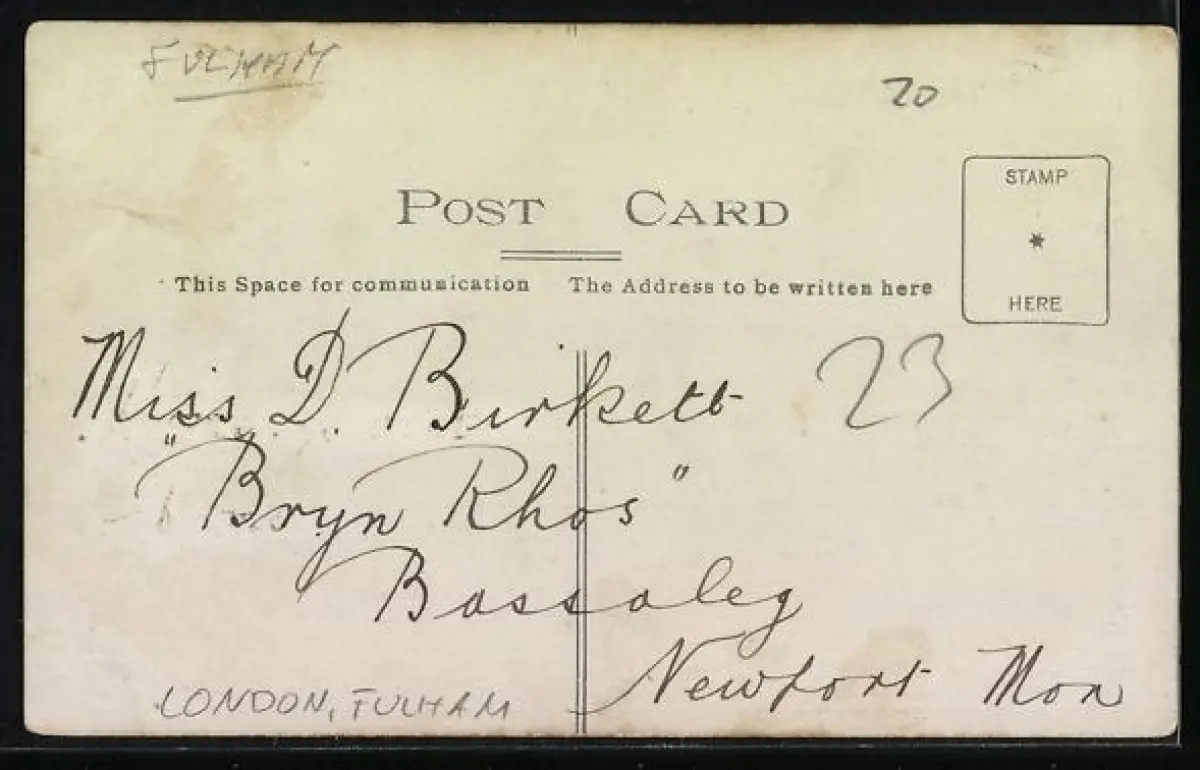 FULHAM
20
POST CARD
STAMP
*
HERE
This Space for communication The Address to be written here
Miss D. Birkett
23
"Bryn Rhos"
Bassaleg
Newport Mon
LONDON, FULHAM